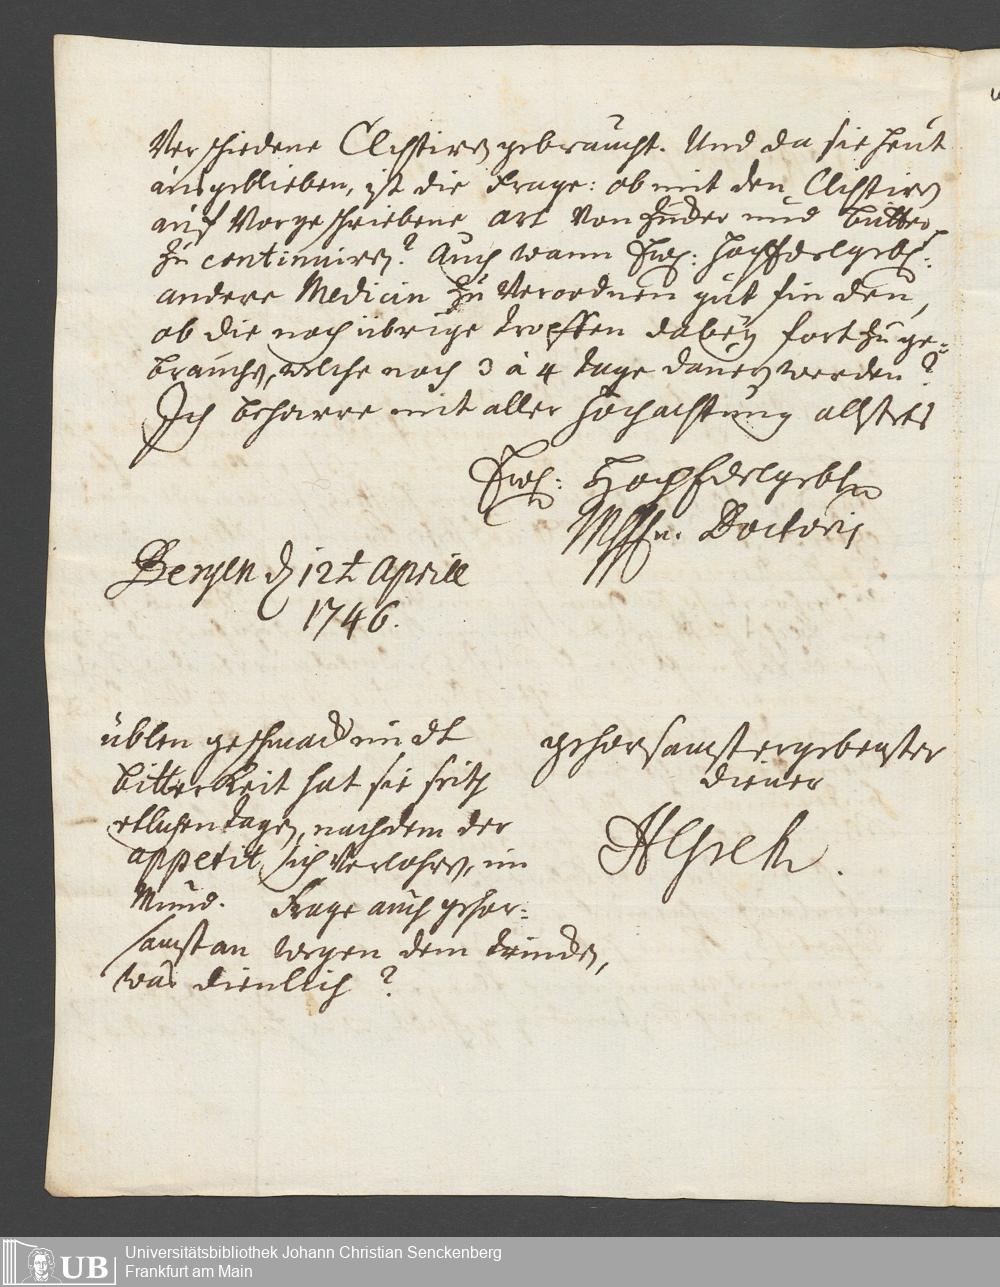 Verschiedene Clistiren gebraucht. Und da sie heut
ausgeblieben, ist die Frage: ob mit den Clistiren
auf Vorgeschriebene art Von Zucker und Butter
zu continuiren? Auch wann Ew: HochEdelgeb:
andere Medicin zu Verordnen gut finden,
ob die noch übrige tropffen dabey fort zu ge-
brauchen, welche noch 3 â 4 tage dauern werden?
Ich beharre mit aller Hochachtung allstets
Ew: HochEdelgebln
Doctoris
Bergen d 12t Aprill
1746.
üblen geschmack und
bitterkeit hat sie seith
etlichen tagen, nachdem der
appetit sich Verlohren, im
Mund. Frage auch gehor-
samst an wegen dem trincken,
was dienlich?
gehorsamst ergebenster
diener
UB
Universitätsbibliothek Johann Christian Senckenberg
Frankfurt am Main